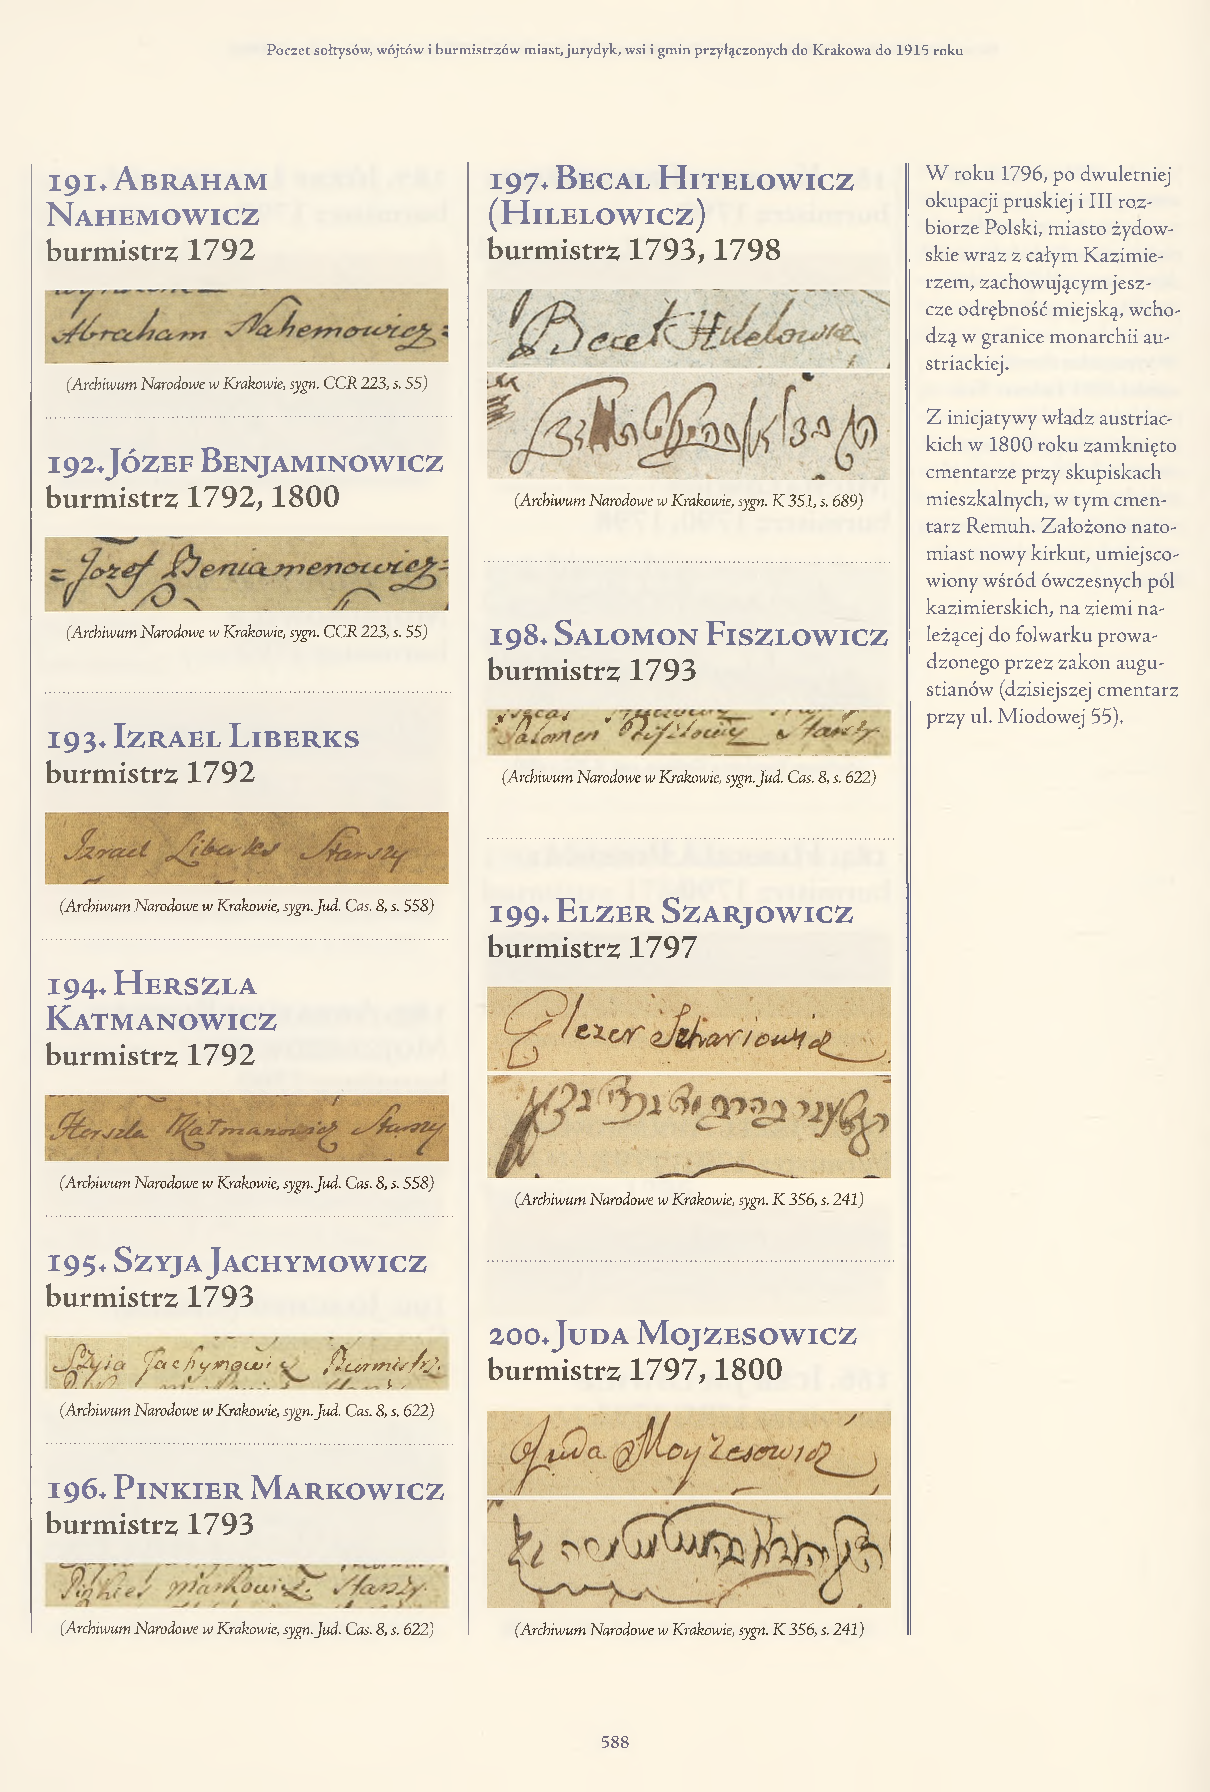 Poczet sołtysów, wójtów i burmistrzów miast, jurydyk, wsi i gmin przyłączonych do Krakowa do 1915 roku
191. Abraham
Nahemowicz
burmistrz 1792
Abraham Nahemowicz
(Archiwum Narodowe w Krakowie, sygn. CCR 223, s. 55)
192. Józef Benjaminowicz
burmistrz 1792, 1800
= Jozef Beniamenowicz =
(Archiwum Narodowe w Krakowie, sygn. CCR 223, s. 55)
193. Izrael Liberks
burmistrz 1792
Izrael Liberks Starszy
(Archiwum Narodowe w Krakowie, sygn. Jud. Cas. 8, s. 558)
194. Herszla
Katmanowicz
burmistrz 1792
Herszla Katmanowicz Starszy
(Archiwum Narodowe w Krakowie, sygn. Jud. Cas. 8, s. 558)
195. Szyja Jachymowicz
burmistrz 1793
Szyia Jachymowicz Burmistrz
(Archiwum Narodowe w Krakowie, sygn. Jud. Cas. 8, s. 622)
196. Pinkier Markowicz
burmistrz 1793
Pinkier Markowicz Starszy
(Archiwum Narodowe w Krakowie, sygn. Jud. Cas. 8, s. 622)
197. Becal Hitelowicz
(Hilelowicz)
burmistrz 1793, 1798
(Archiwum Narodowe w Krakowie, sygn. K 351, s. 689)
198. Salomon Fiszlowicz
burmistrz 1793
Salomon
(Archiwum Narodowe w Krakowie, sygn. Jud. Cas. 8, s. 622)
199. Elzer Szarjowicz
burmistrz 1797
Elezer Szhariowicz
(Archiwum Narodowe w Krakowie, sygn. K 356, s. 241)
200. Juda Mojzesowicz
burmistrz 1797, 1800
Juda Moyzesowicz
(Archiwum Narodowe w Krakowie, sygn. K 356, s. 241)
W roku 1796, po dwuletniej
okupacji pruskiej i III roz-
biorze Polski, miasto żydow-
skie wraz z całym Kazimie-
rzem, zachowującym jesz-
cze odrębność miejską, wcho-
dzą w granice monarchii au-
striackiej.
Z inicjatywy władz austriac-
kich w 1800 roku zamknięto
cmentarze przy skupiskach
mieszkalnych, w tym cmen-
tarz Remuh. Założono nato-
miast nowy kirkut, umiejsco-
wiony wśród ówczesnych pól
kazimierskich, na ziemi na-
leżącej do folwarku prowa-
dzonego przez zakon augu-
stianów (dzisiejszej cmentarz
przy ul. Miodowej 55).
588